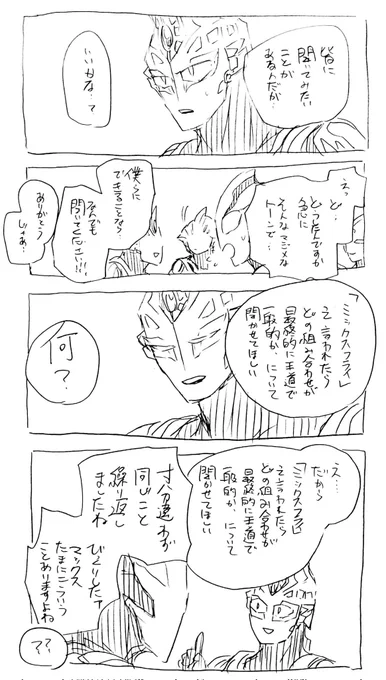 皆に
聞いてみたい
ことが
あるんだが…
いいかな…？
えっ
ど…
どうしたんですか
急に
そんなマジメな
トーンで…
僕らに
できることなら…
なんでも
聞いてください!!!
ありがとう
じゃあ…
「ミックスフライ」
と言われたら
どの組み合わせが
最終的に王道で
一般的か、について
聞かせてほしい
何？
え…
だから
「ミックスフライ」
と言われたら
どの組み合わせが
最終的に王道で
一般的か、について
聞かせてほしい
寸分違わず
同じこと
繰り返し
ましたね
びっくりした
マックス
たまにこういう
ことありますよね
??